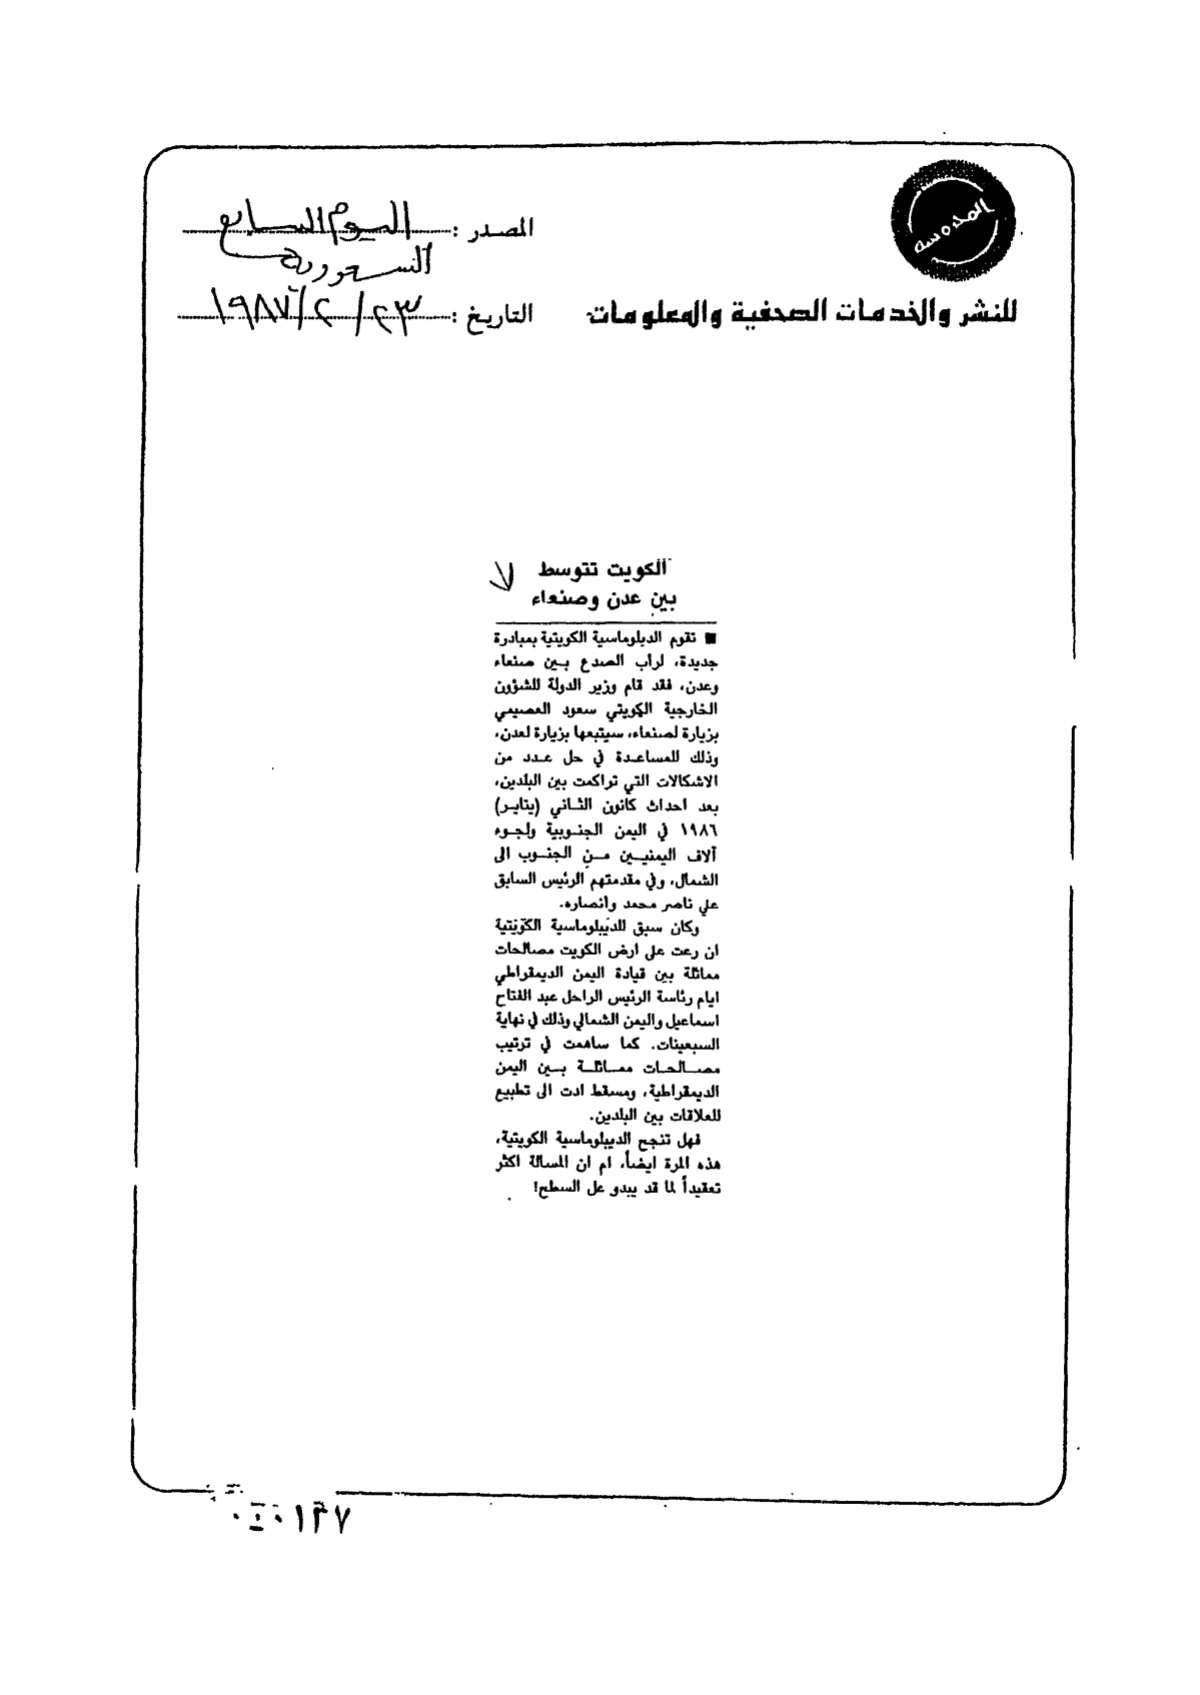 المحروسة
للنشر والخدمات الصحفية والمعلومات
المصدر : اليوم السابع
السعودية
التاريخ : ٢٣/٢/١٩٨٧
الكويت تتوسط
بين عدن وصنعاء
■ تقوم الدبلوماسية الكويتية بمبادرة
جديدة، لرأب الصدع بين صنعاء
وعدن، فقد قام وزير الدولة للشؤون
الخارجية الكويتي سعود العصيمي
بزيارة لصنعاء، سيتبعها بزيارة لعدن،
وذلك للمساعدة في حل عدد من
الاشكالات التي تراكمت بين البلدين،
بعد احداث كانون الثاني (يناير)
١٩٨٦ في اليمن الجنوبية ولجوء
آلاف اليمنيين من الجنوب الى
الشمال، وفي مقدمتهم الرئيس السابق
علي ناصر محمد وانصاره.
وكان سبق للديبلوماسية الكويتية
ان رعت على ارض الكويت مصالحات
مماثلة بين قيادة اليمن الديمقراطي
ايام رئاسة الرئيس الراحل عبد الفتاح
اسماعيل واليمن الشمالي وذلك في نهاية
السبعينات. كما ساهمت في ترتيب
مصالحات مماثلة بين اليمن
الديمقراطية، ومسقط ادت الى تطبيع
للعلاقات بين البلدين.
فهل تنجح الديبلوماسية الكويتية،
هذه المرة ايضاً، ام ان المسالة اكثر
تعقيداً لما قد يبدو عل السطح!